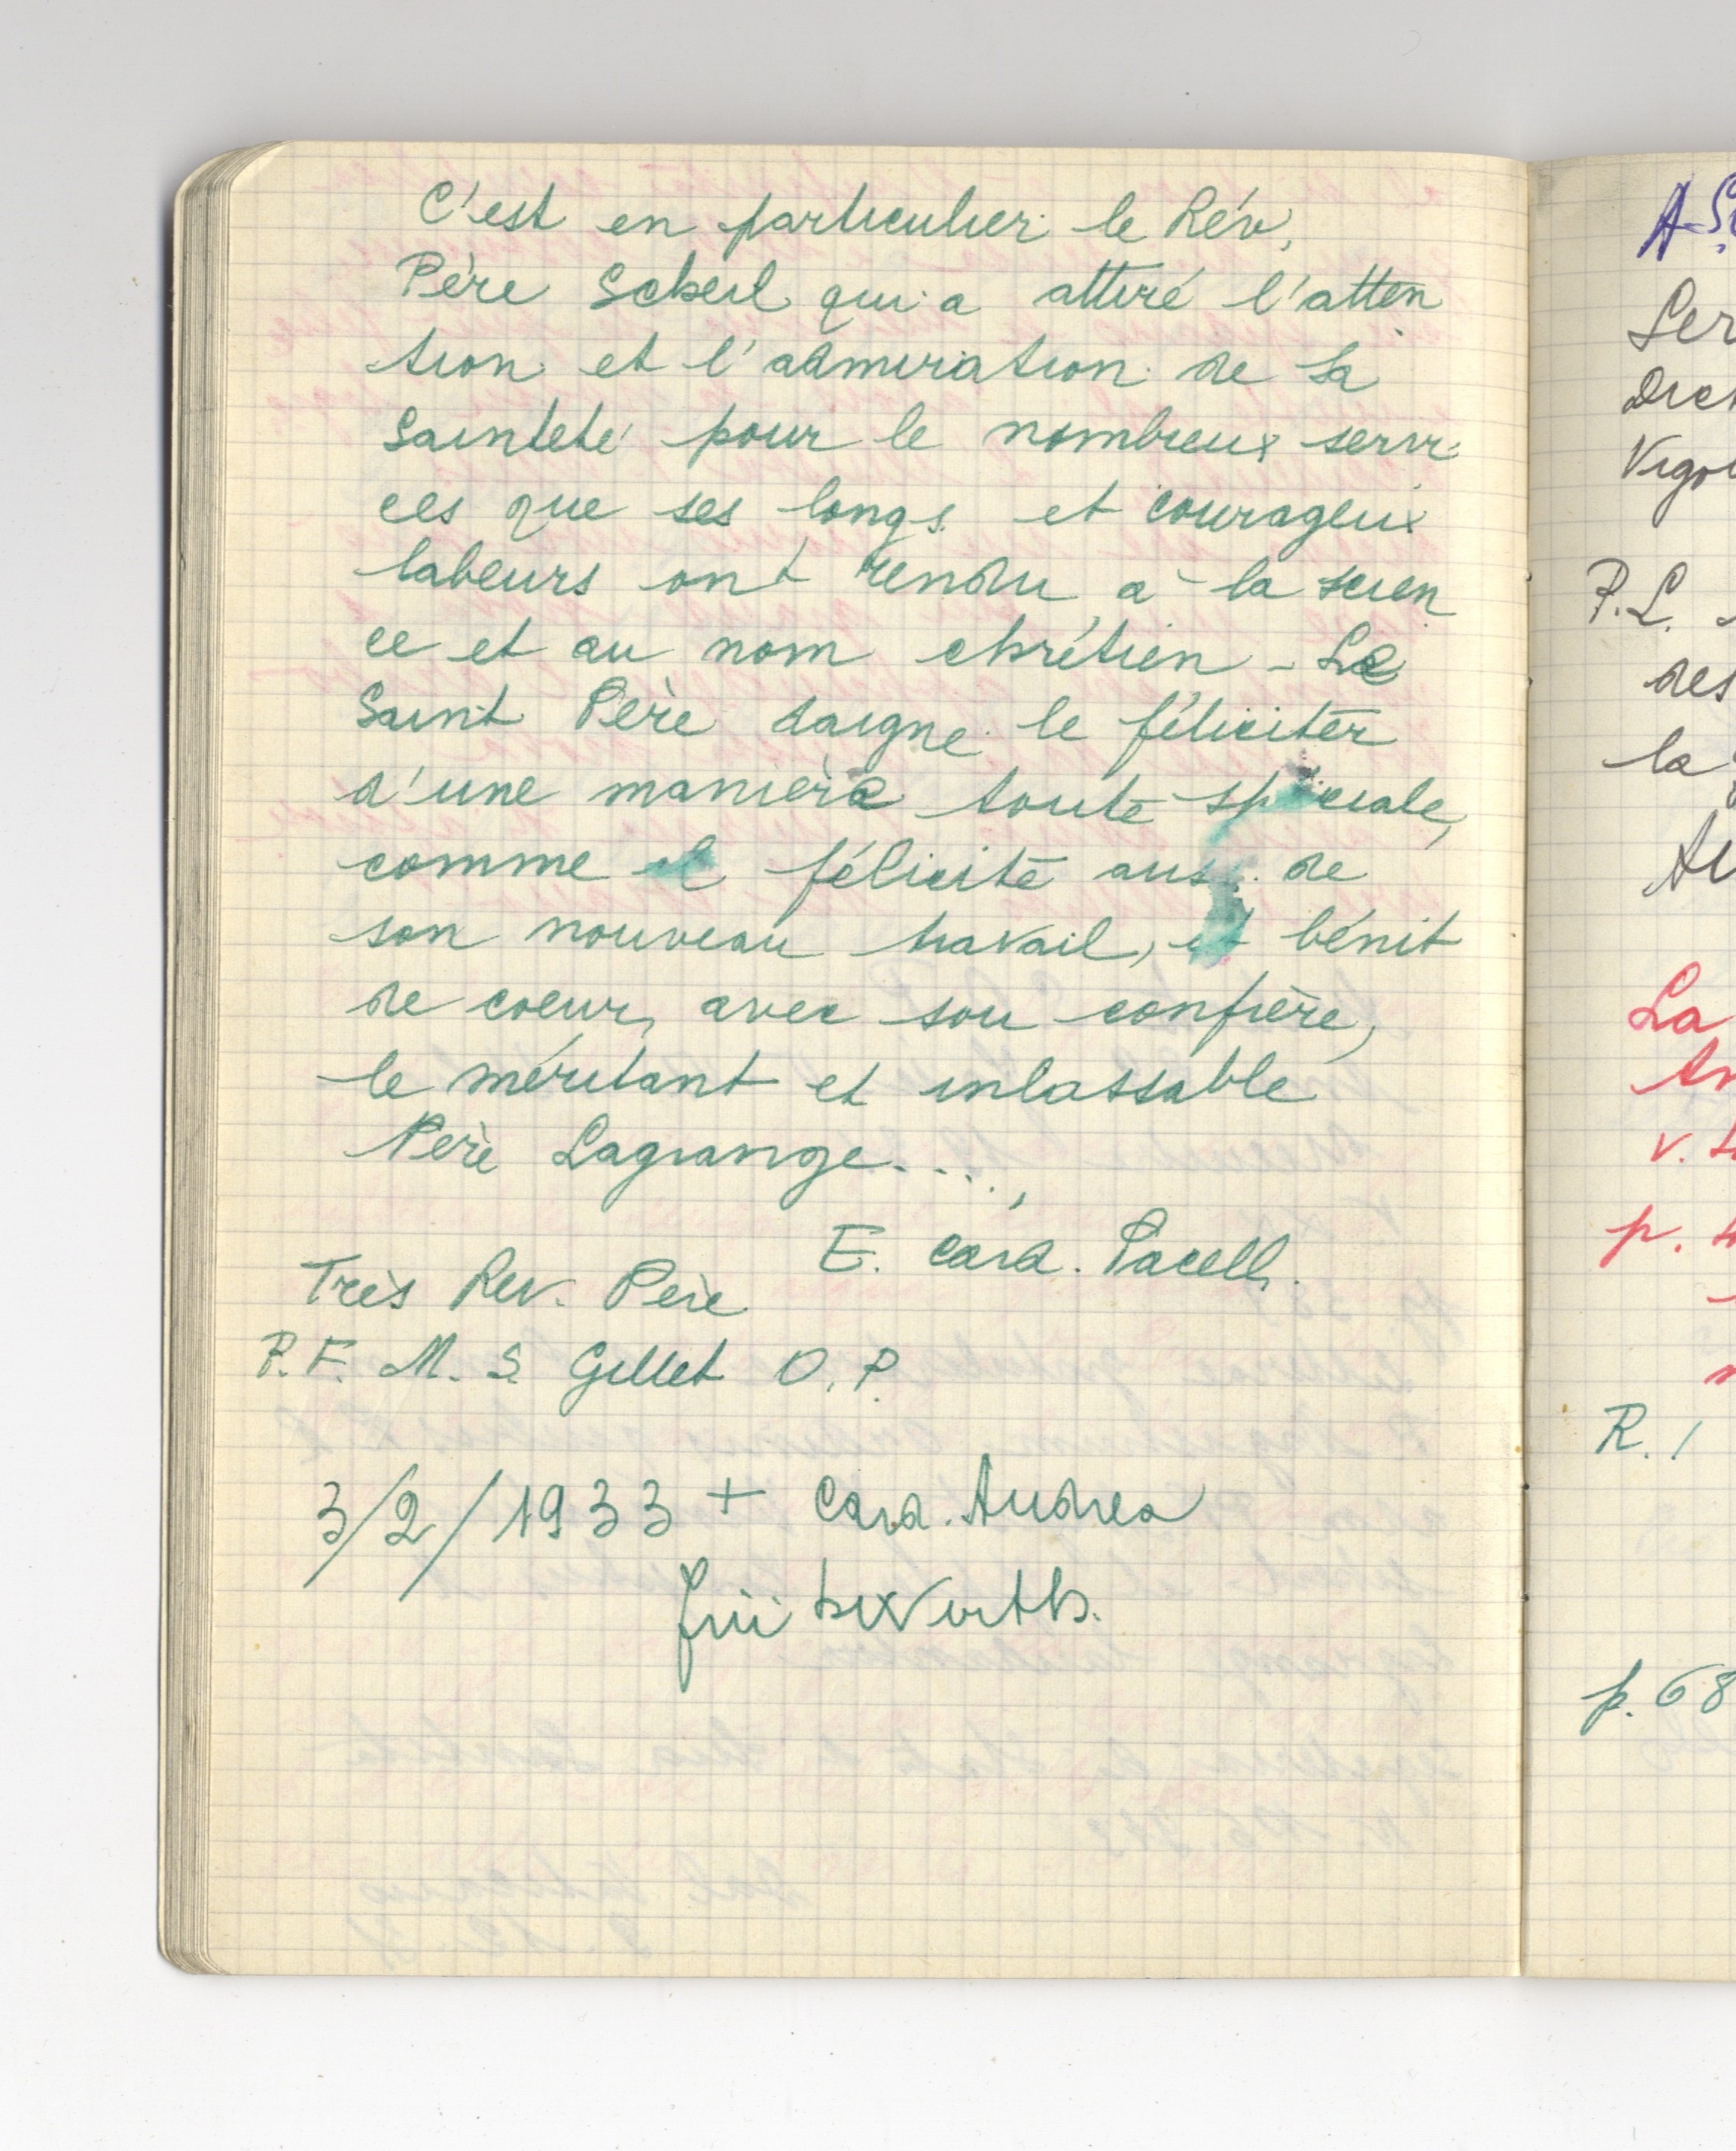 C'est en particulier le Rév.
Père Scheil qui a attiré l'atten
tion et l'admiration de Sa
Sainteté pour le nombreux servi
ces que ses longs et courageux
labeurs ont rendu à la scien
ce et au nom chrétien - Le
Saint Père daigne le féliciter
d'une manière toute spéciale,
comme il félicite aussi de
son nouveau travail, et bénit
de coeur, avec son confrère,
le méritant et inlassable
Père Lagrange....,
E. Card. Pacelli.
Très Rev. Père
P. F. M. S. Gillet O. P.
3/2/1933 + Card. Andrea
Frühwirth.
A-
Ser
Dict
Vigou
P.L.
des
la
La
An
v.
p.
R. 1
p. 68